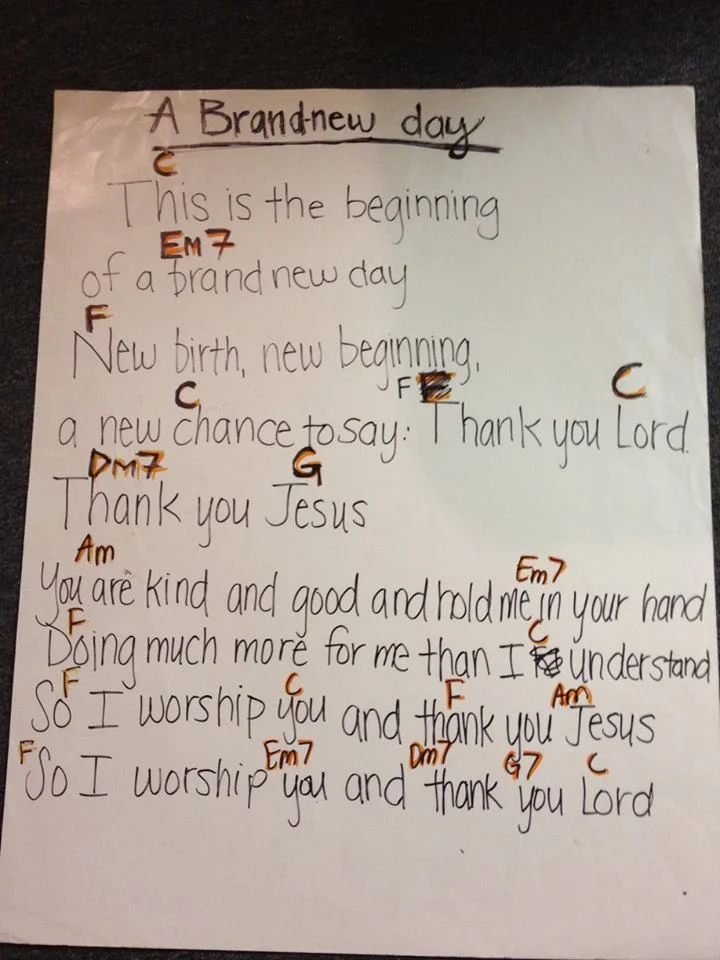 A Brand-new day
C
This is the beginning
Em7
of a brand new day
F
New birth, new beginning,
C F C
a new chance to say: Thank you Lord.
Dm7 G
Thank you Jesus
Am Em7
You are kind and good and hold me in your hand
F C
Doing much more for me than I understand
F C F Am
So I worship you and thank you Jesus
F Em7 Dm7 G7 C
So I worship you and thank you Lord